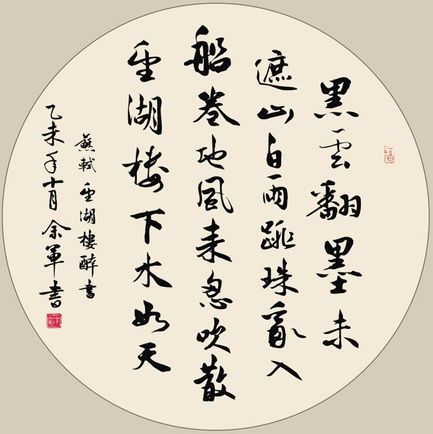 黑雲翻墨未
遮山白雨跳珠亂入
船卷地風来忽吹散
望湖樓下水如天
蘇軾望湖樓醉書
乙未年十月余軍書